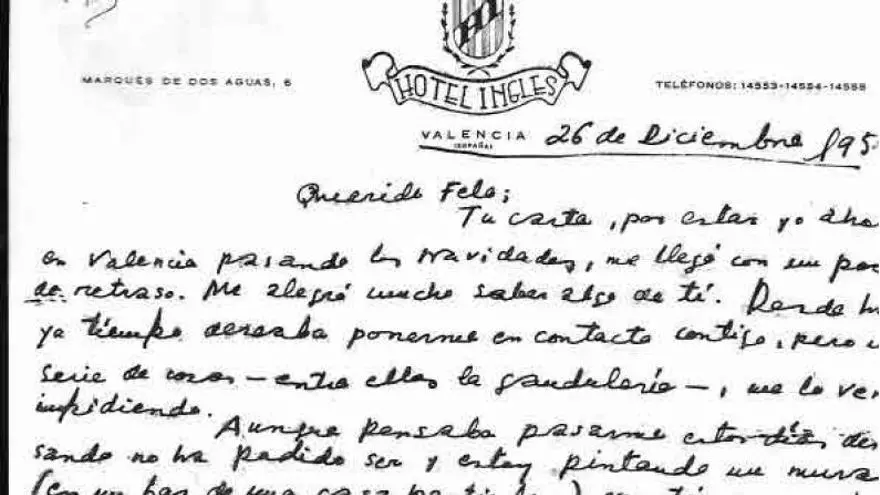 MARQUÉS DE DOS AGUAS, 6
HOTEL INGLES
TELÉFONOS: 14553-14554-14555
VALENCIA
(ESPAÑA)
26 de Diciembre 195
Querido Felo;
Tu carta, por estar yo aho
en Valencia pasando las navidades, me llegó con un poc
de retraso. Me alegró mucho saber algo de tí. Desde h
ya tiempo deseaba ponerme en contacto contigo, pero u
serie de cosas - entre ellas la gandulería -, me lo ve
impidiendo.
Aunque pensaba pasarme estos días des
sando no ha podido ser y estoy pintando un mura
(en un bar de una casa